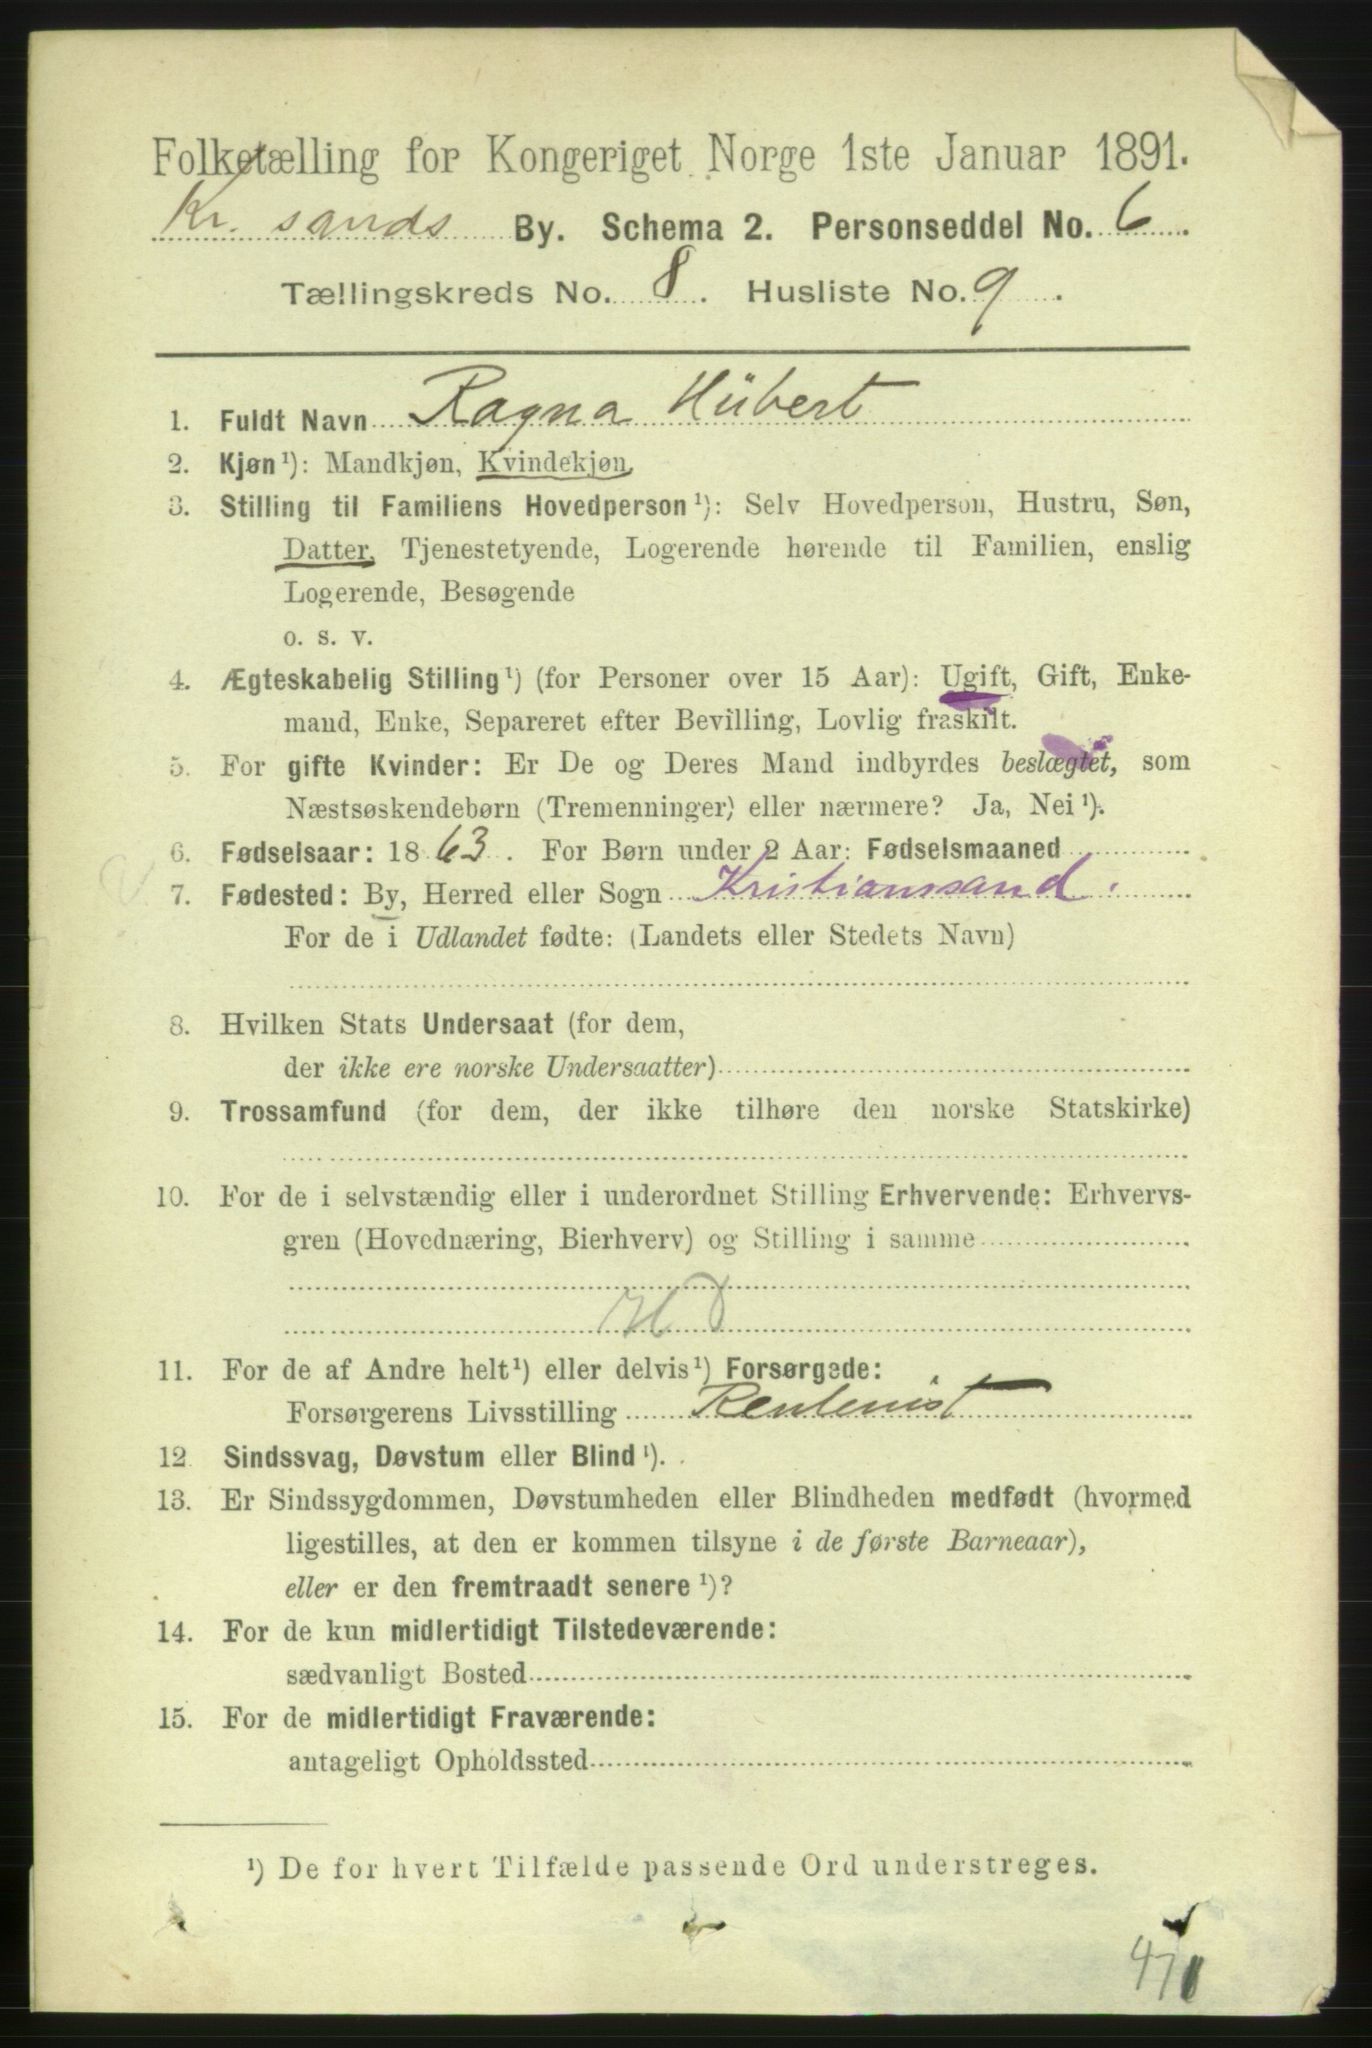 Folketælling for Kongeriget Norge 1ste Januar 1891.
Kr. sands By. Schema 2. Personseddel No. 6.
Tællingskreds No. 8. Husliste No. 9.
1. Fuldt Navn Ragna Hübert
2. Kjøn¹): Mandkjøn, Kvindekjøn,
3. Stilling til Familiens Hovedperson¹): Selv Hovedperson, Hustru, Søn,
Datter, Tjenestetyende, Logerende hørende til Familien, enslig
Logerende, Besøgende
o. s. v.
4. Ægteskabelig Stilling¹) (for Personer over 15 Aar): Ugift, Gift, Enke-
mand, Enke, Separeret efter Bevilling, Lovlig fraskilt.
5. For gifte Kvinder: Er De og Deres Mand indbyrdes beslægtet, som
Næstsøskendebørn (Tremenninger) eller nærmere? Ja, Nei¹).
6. Fødselsaar: 1863. For Børn under 2 Aar: Fødselsmaaned
7. Fødested: By, Herred eller Sogn Kristianssand.
For de i Udlandet fødte: (Landets eller Stedets Navn)
8. Hvilken Stats Undersaat (for dem,
der ikke ere norske Undersaatter)
9. Trossamfund (for dem, der ikke tilhøre den norske Statskirke)
10. For de i selvstændig eller i underordnet Stilling Erhvervende: Erhvervs-
gren (Hovednæring, Bierhverv) og Stilling i samme
11. For de af Andre helt¹) eller delvis¹) Forsørgede:
Forsørgerens Livsstilling Rentenist
12. Sindssvag, Døvstum eller Blind¹).
13. Er Sindssygdommen, Døvstumheden eller Blindheden medfødt (hvormed
ligestilles, at den er kommen tilsyne i de første Barneaar),
eller er den fremtraadt senere¹)?
14. For de kun midlertidigt Tilstedeværende:
sædvanligt Bosted
15. For de midlertidigt Fraværende:
antageligt Opholdssted
¹) De for hvert Tilfælde passende Ord understreges.